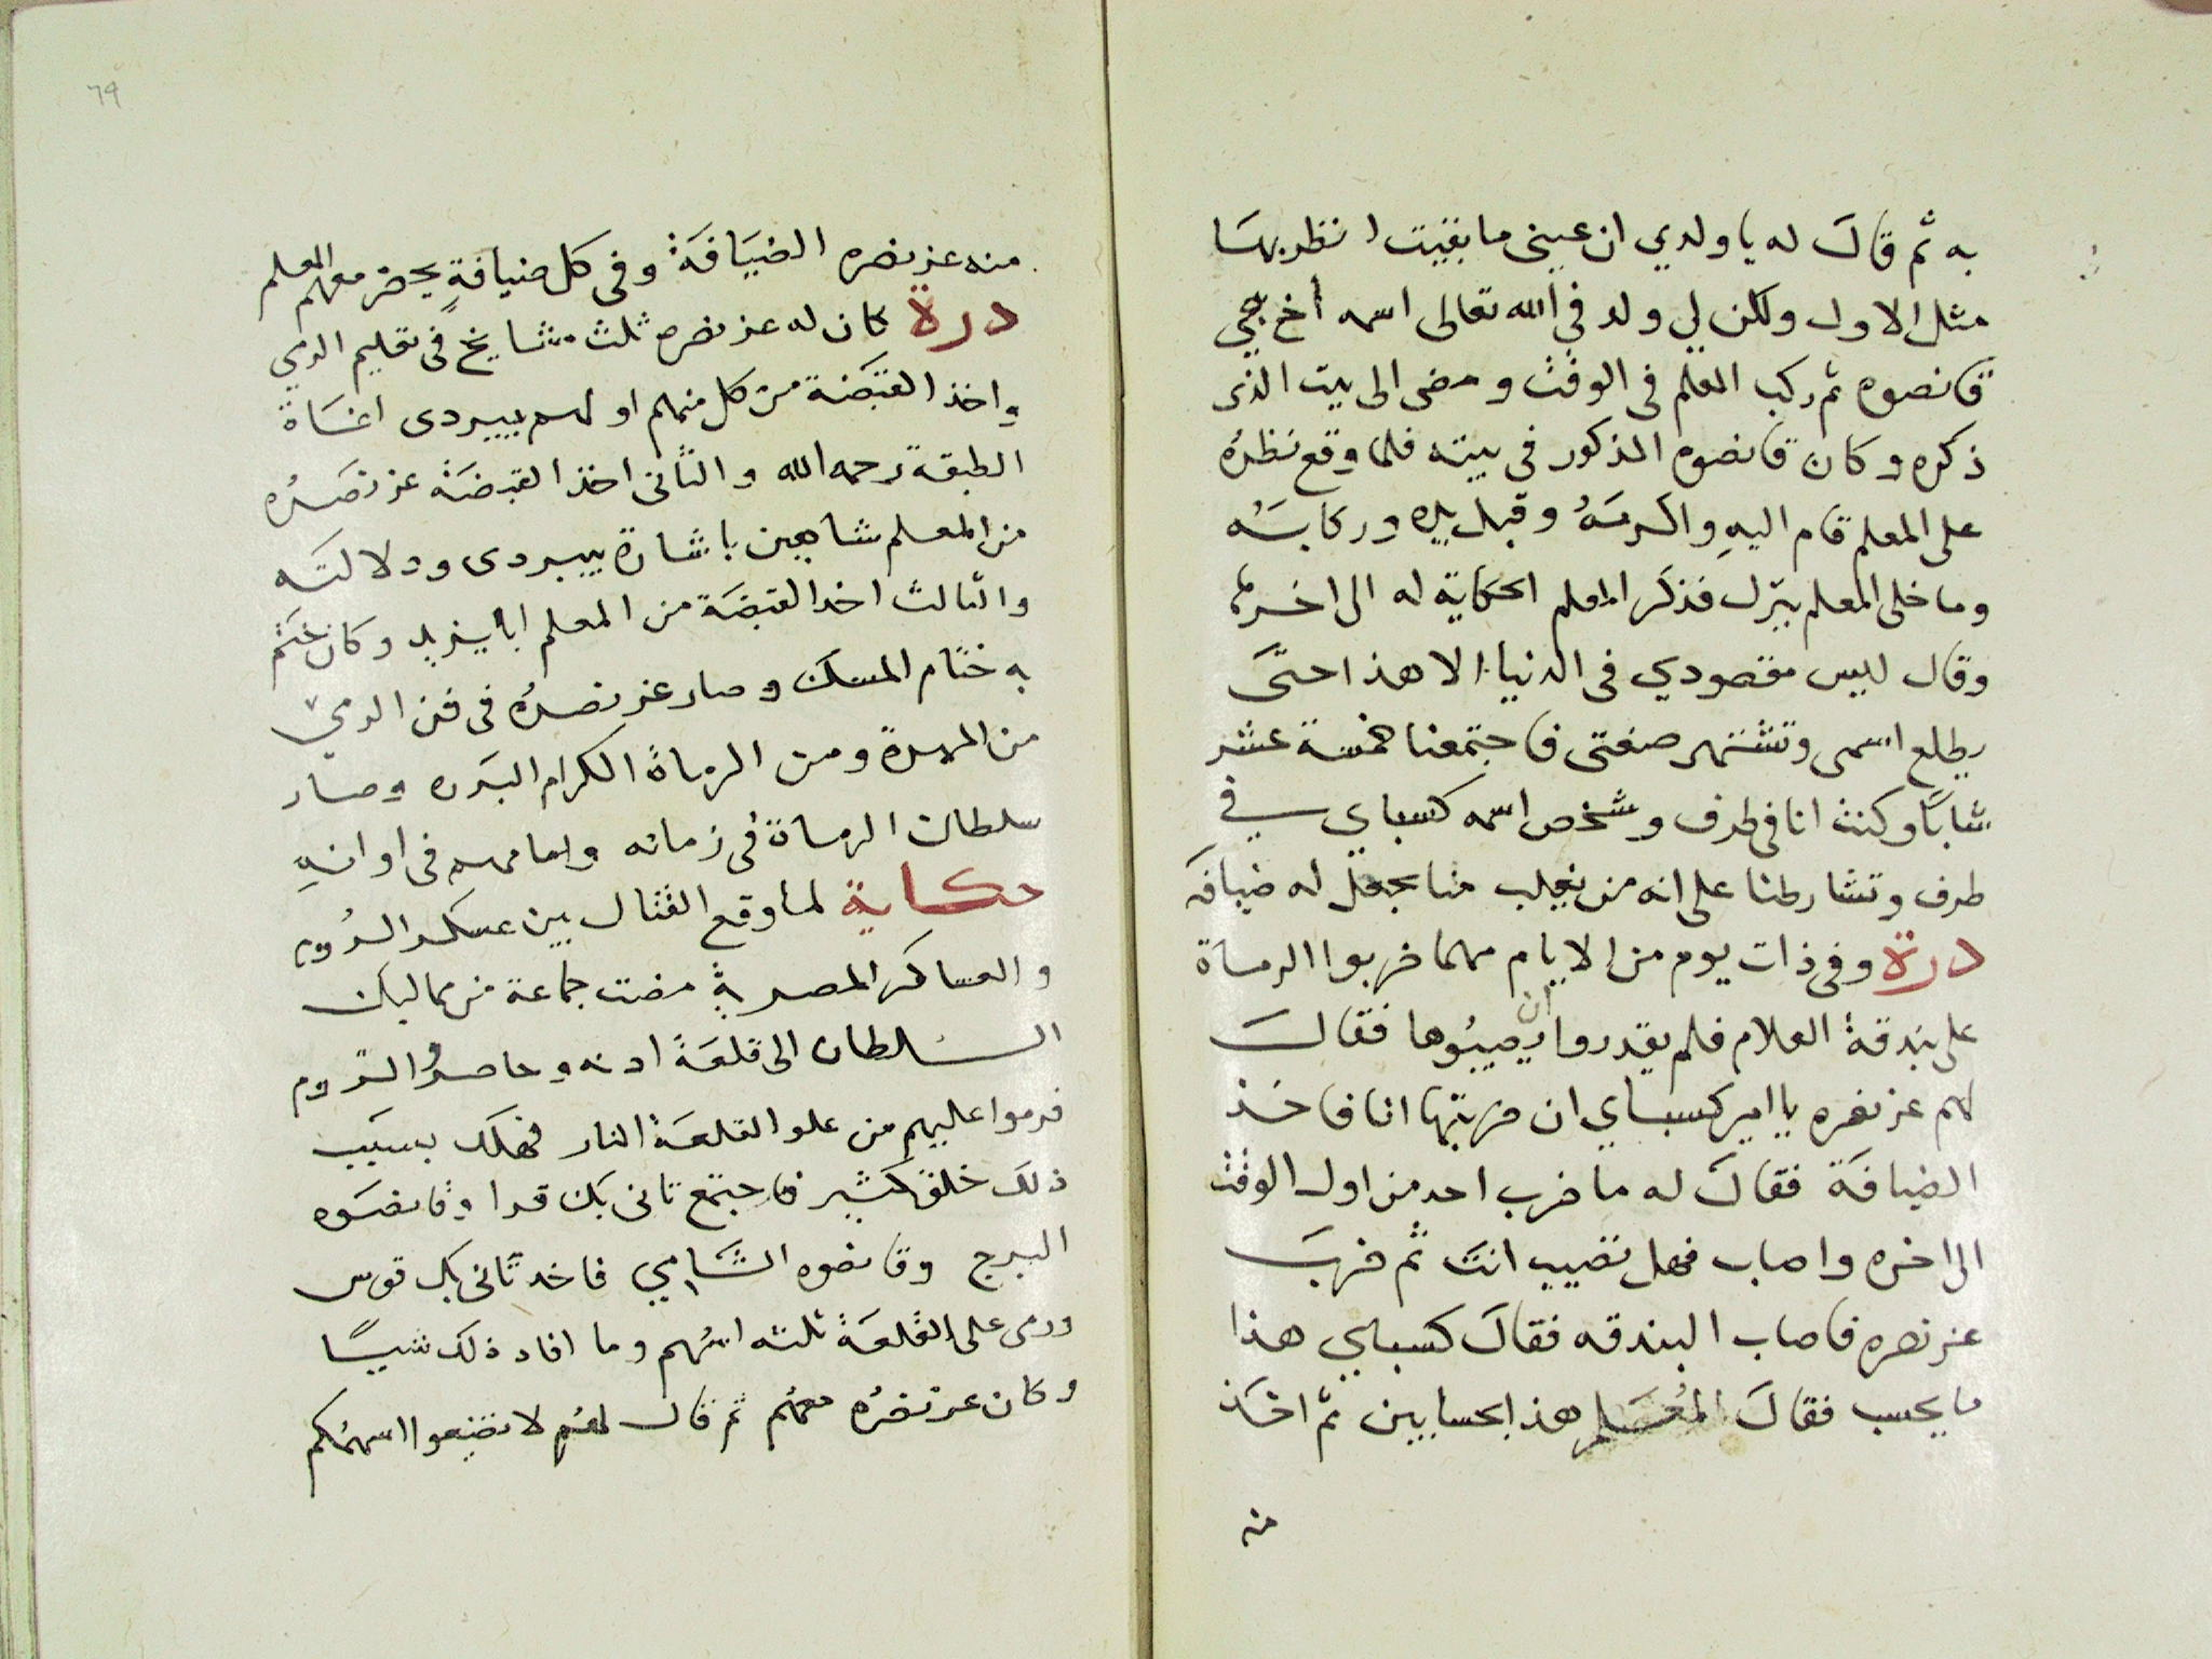 به ثم قالَ له يا ولدي ان عيني ما بقيت انظر بهسَا
مثل الاول ولكن لي ولد في الله تعالى اسمه أخ جي
قانصوه ثم ركب المعلم فى الوقت ومضى الى بيت الذى
ذكره وكان قانصوه المذكور فى بيته فلما وقع نظرُه
على المعلم قام اليهِ واكرمَهُ وقبل يده وركابَـهُ
وما خلى المعلم ينزل فذكر المعلم الحكاية له الى اخرها
وقال ليس مقصودي فى الدنيا الا هذا حتىَ
يطلع اسمى وتشتهر صنعتى فاجتمعنا خمسة عشر
شابًا وكنت انا فى طرف وشخص اسمه كسباي في
طرف وتشارطنا على انه من يغلب منا يجعل له ضيافه
درة وفى ذات يوم من الايام مهما ضربوا الرماة
على بندقة العلام فلم يقدروا ان يصيبُوها فقالَ
لهم عز نصره يا امير كسباي ان ضربتها انا فاخذ
الضيافة فقالَ له ما ضرب احد من اول الوقت
الى اخره واصاب فهل تصيب انتَ ثم ضربَ
عز نصره فاصاب البندقه فقالَ كسباي هذا
ما يحسب فقالَ المُعَلم هذا بحسابين ثم اخذ
منه
٦٩
منه عز نصره الضيَافَةَ وفى كل ضيافةٍ يحضر معهم المعلم
درة كان له عز نصره ثلث مشايخ فى تعليم الرمي
واخذ القبَضة من كل منهم اولهم بيبردى اغسَاة
الطبقة رحمه الله والثانى اخذ القبضَة عز نصَـرُه
من المعلم شاهين باشارة بيبردى ودلالتَه
والثالث اخذ القبضَة من المعلم ابا يزيد وكان ختم
به ختام المسك وصار عز نصرُه فى فن الرمي
من المهرة ومن الرماة الكرام البَرره وصار
سلطان الرماة فى زمانه وامامهم فى اوانهِ
حكاية لما وقع القتال بين عسكر الرُوم
والعساكر المصرية مضت جماعة من مماليك
السلطان الى قلعَة ادنه وحاصرُوا الروم
فرموا عليهم من علو القلعَة النار فهلك بسبَب
ذلكَ خلق كثير فاجتمع تانى بك قرا وقانصَوه
البرج وقانصوه الشَامي فاخذ تانى بك قوس
ورمى على القلعَة ثلثه اسْهم وما افاد ذلك شيـًا
وكان عز نصرُه معهُم ثم قال لهم لا تضيعوا اسهمُكم